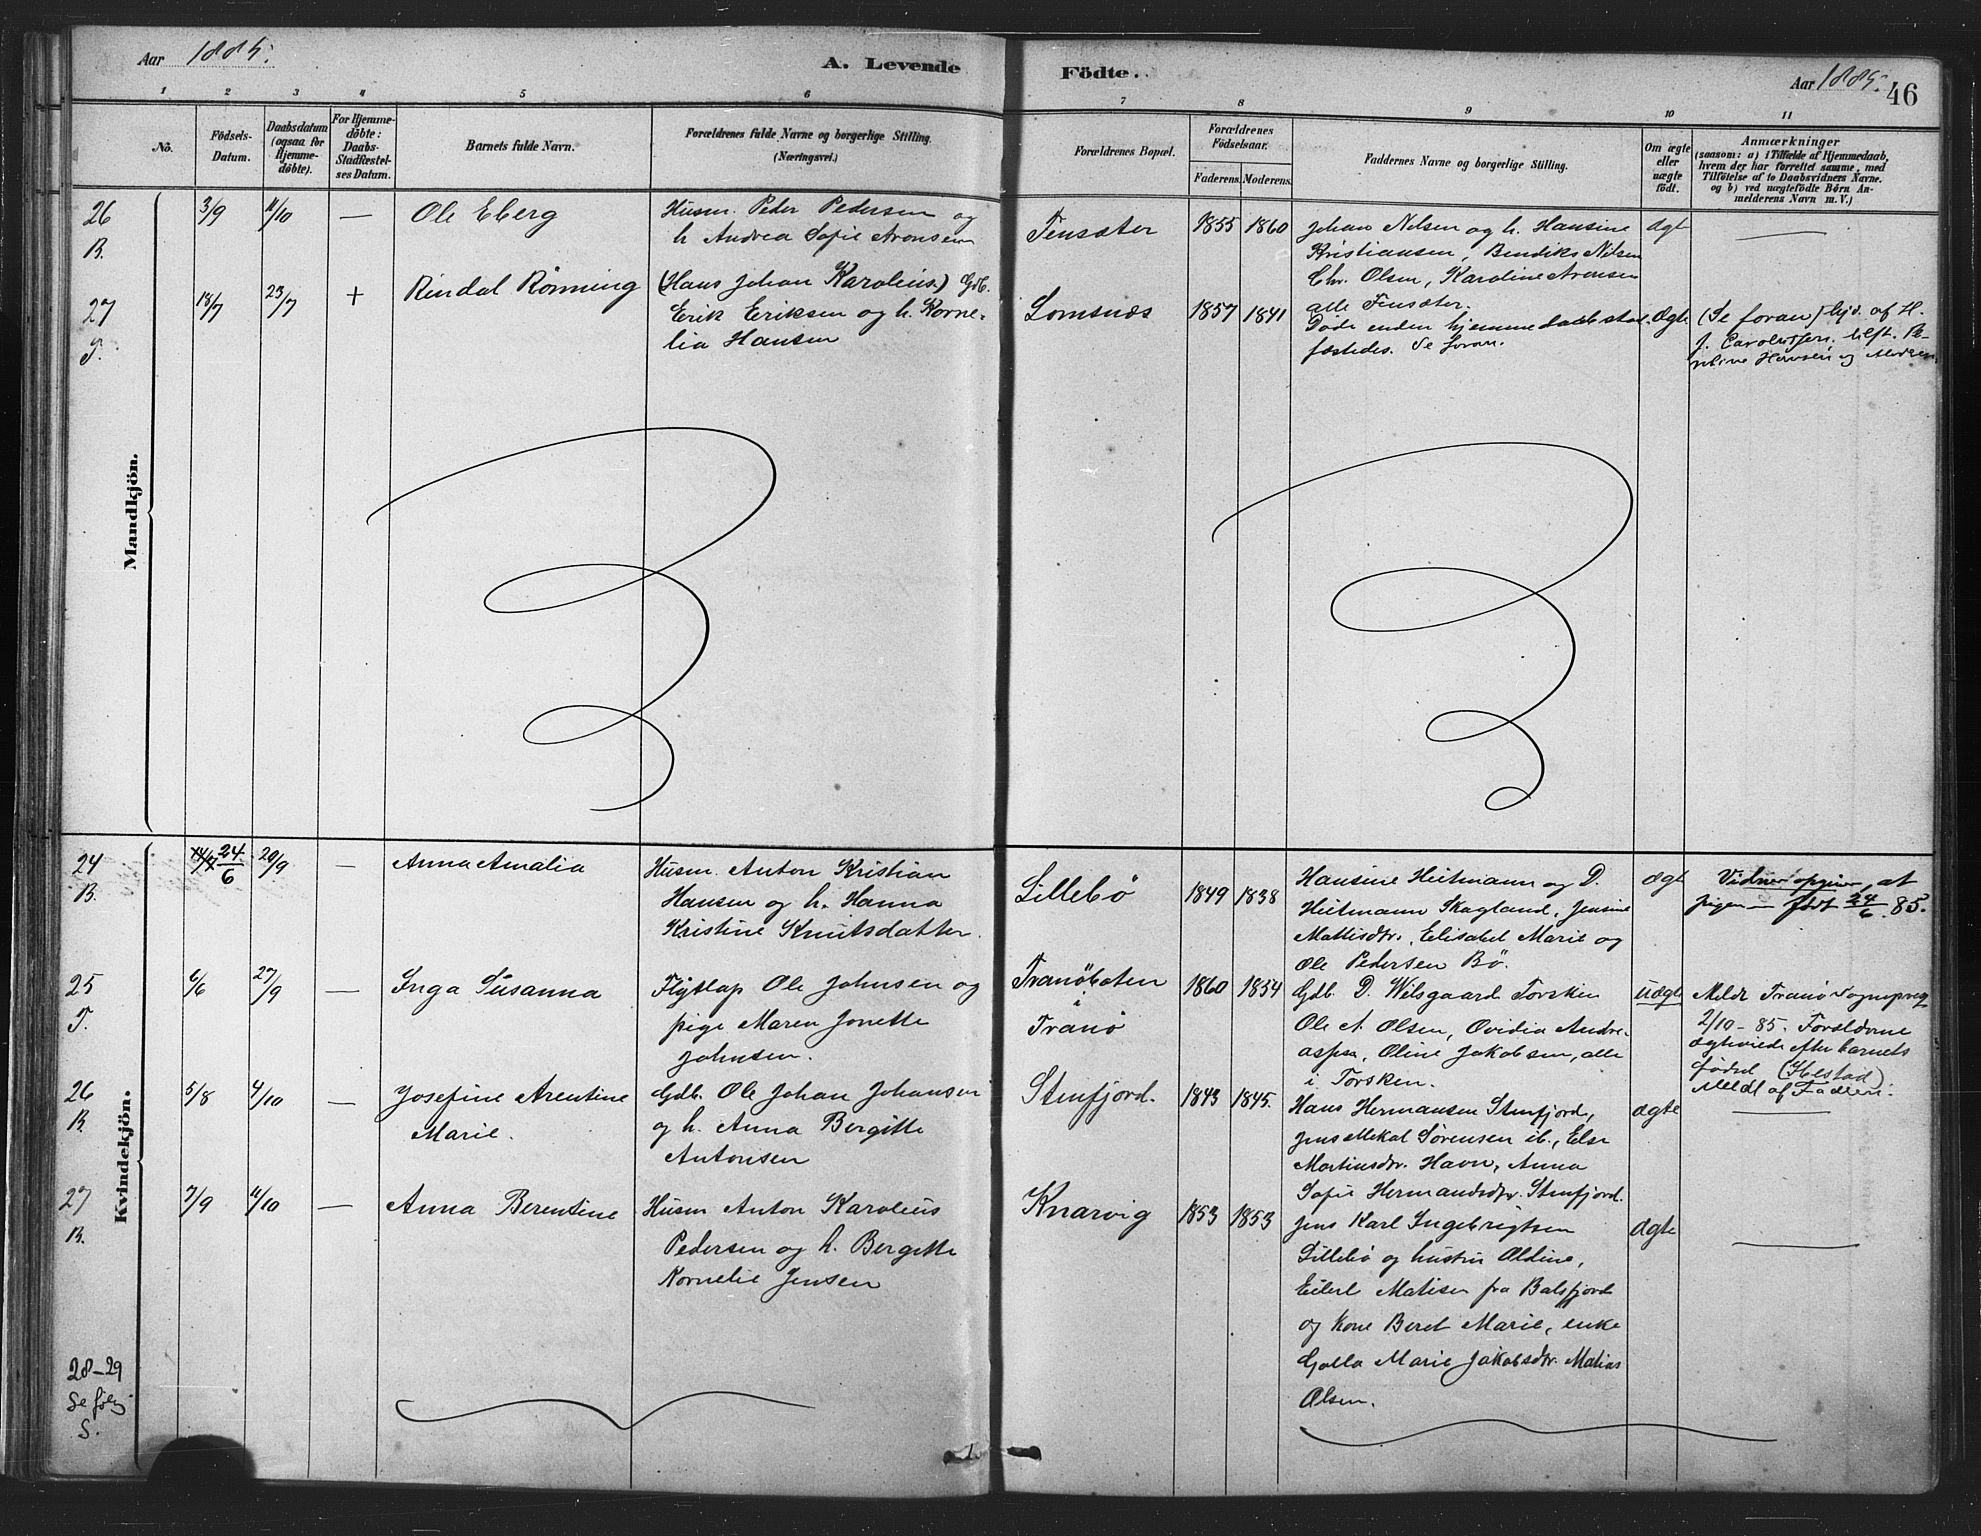 Aar 1885.
A. Levende
Födte.
Aar 1885.
46
1 2 3 4 5 6 7 8 9 10 11
No.
Födsels-Datum.
Daabsdatum (ogsaa for Hjemme-döbte).
For Hjemme-döbte: Daabs-Stadfæstel-ses Datum.
Barnets fulde Navn.
Forældrenes fulde Navne og borgerlige Stilling.
(Næringsvei.)
Forældrenes Bopæl.
Forældrenes Födselsaar.
Faderens. Moderens.
Faddernes Navne og borgerlige Stilling.
Om ægte eller uægte födt.
Anmærkninger
(saasom: a) i Tilfælde af Hjemmedaab,
hvem der har forrettet samme, med
Tilföielse af to Daabsvidners Navne.
og b) ved uægtefödte Börn An-
melderens Navn m. V.)
Mandkjön.
26 B. 3/9 11/10 — Ole Eberg
Husm. Peder Pedersen og
h. Andrea Sofie Aronsen
Finsæter 1855 1860
Johan Nilsen og h. Hansine
Kristiansen, Bendiks Nilsen
Chr. Olsen, Karoline Aronsen
alle Finsæter.
ægt —
27 T. 18/7 23/7 + Rindal Rönning
(Hans Johan Karolius.) Gdb.
Erik Eriksen og h. Korne-
lia Hansen
Lomsnæs 1857 1841
Døde uden hjemmedaab stad-
fæstedes. Se foran.
Ægte
(Se foran) hjd. af H.
J. Carolussen.
Kvindekjön.
24 B. 14/7 24/6 20/9 — Anna Amalia
Husm. Anton Kristian
Hansen og h. Hanna
Kristine Knutsdatter.
Lillebö 1849 1838
Hansine Heitmann og D.
Heitmann Skagland, Jensine
Mattisdtr., Elisabet Marie og
Ole Pedersen Bö.
ægt
Vidner opgiver, at
pigen — født 24/6. 85.
25 T. 6/6 27/9 — Inga Susanna
Flytlap Ole Johnsen og
pige Maren Jonette
Johnsen.
Tranöboten
i
Tranö
1860 1854
Gdb. D. Wilsgaard Torsken
Ole A. Olsen, Ovidia Andre-
aspsa, Oline Jakobsen, alle
i Torsken.
uægte
Meldt Tranö Sognepreg
2/10 – 85. Forældrene
ægteviede efter barnets
fødsel (Helstad).
Meldt af Faderen.
26 B. 5/8 4/10 — Josefine Arentine
Marie.
Gdb. Ole Johan Johansen
og h. Anna Bergitte
Antonsen
Stenfjord. 1843 1845.
Hans Hermansen Stenfjord,
Jens Mekal Sörensen ib., Else
Martinsdtr. Havn, Anna
Sofie Hermandsdtr. Stenfjord.
ægte —
27 B. 7/9 4/10 — Anna Berentine
Husm Anton Karolius
Pedersen og h. Bergitte
Kornelie Jensen
Knarvig 1853 1853
Jens Karl Ingebrigtsen
Lillebö og hustru Aldine,
Eilert Matisen fra Balsfjord
og kone Beret Marie, enke
Golla Marie Jakobsdtr. Matias
Olsen.
ægte —
28–29
Se følg.
S.